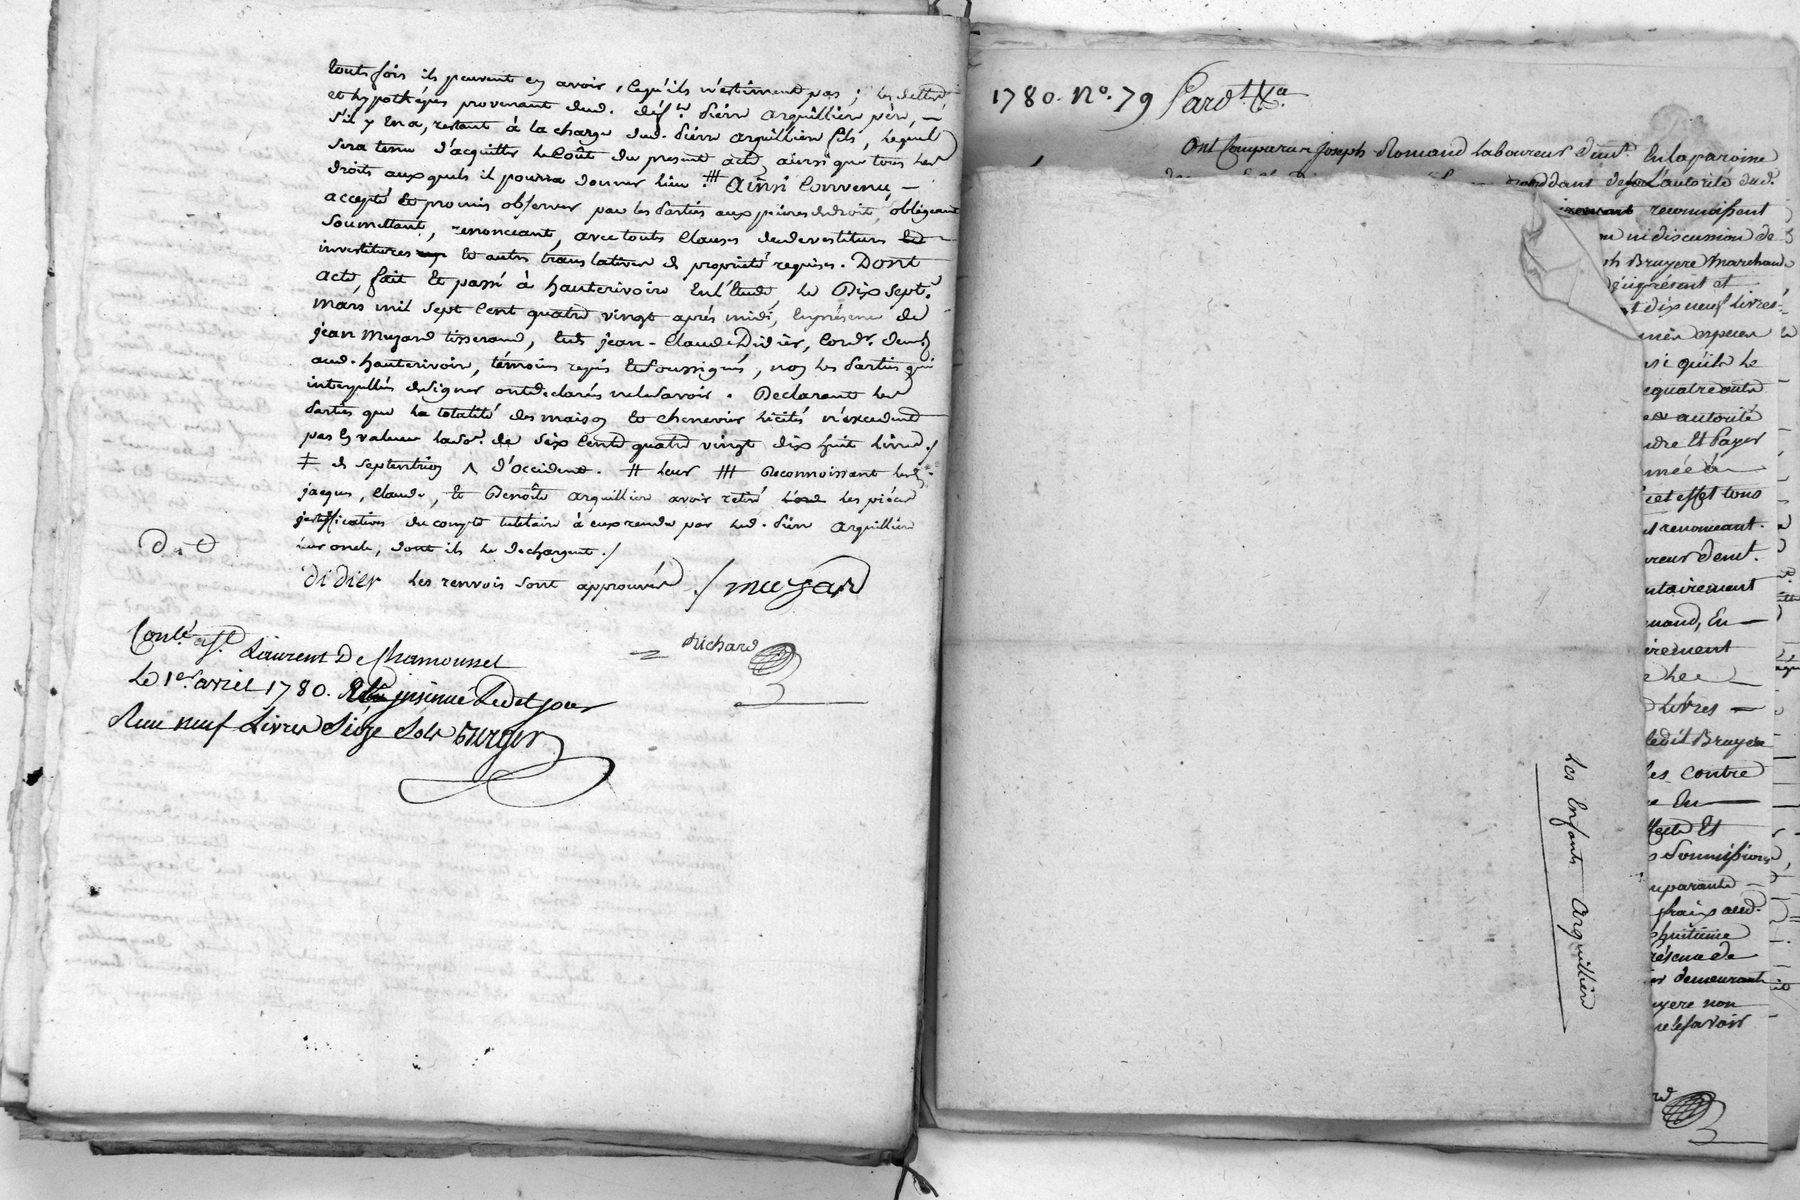 touts fois ils peuvent en avoir, cequ'ils n'estiment pas; les dettes
et hypothéques provenant dud. deft. Pierre arquillière père, —
s'il y en a, restant à la charge dud. Pierre arquillière fils, lequel
sera tenu d'acquitter le Coût du present acte ainsi que tous les
droits auxquels il pourra donner lieu. ⧻ Ainsi Convenu —
accepté et promis observer par les Parties aux peines de droit, obligeant
soumettant, renonceant, avec touts Clauses de devestitures
investitures et autres translatives de proprieté requises. Dont
acte, fait et passé à hauterivoire en l'Etude le Dix sept.
mars mil sept Cent quatre vingt après midi, en présence de
jean muzard tisserand, et jean-Claude Didier, Cordr. demt.
aud. hauterivoire, témoins requis et soussignés, non les Parties qui
interpellées de signer ont déclarés ne le savoir. Declarant les
Parties que la totalité des maison et chenevier licités n'excedent
pas en valeur la so. de six Cents quatre vingt dix huit livres ./
‡ de septentrion ʌ d'occident. # leur ⧻ Reconnoissant lesd.
jacques, Claude, et Benoîte arquillière avoir retiré les pièces
justificatives du compte tutelaire à eux rendu par led. Pierre arquillière
leur oncle, dont ils le dechargent ./
D. C
didier les renvois sont approuvés ./ muzard
Richard
Contlé. à St. Laurent De Chamousset
Le 1er. avril 1780. insinué Ledit jour
Reçu neuf Livres Seize Sols
1780. No. 79
Ont Comparu Joseph Romand Laboureur demt. En la paroisse
dant de l'autorité dud.
reconnoissent
ni discussion de
ph Bruyere Marchand
à ce present et
dix neuf livres
espèces
si qu'ils le
quatre
autorité
dre Et Payer
cet effet tous
renonceant.
demt.
ntairement
mand, En —
irement
Livres —
ledit Bruyere
les contre
En —
Et
Soumissions,
mparants —
fraix aud.
huitième
présence de
demeurant
uyere non
ne le savoir
Les Enfants Arquillière